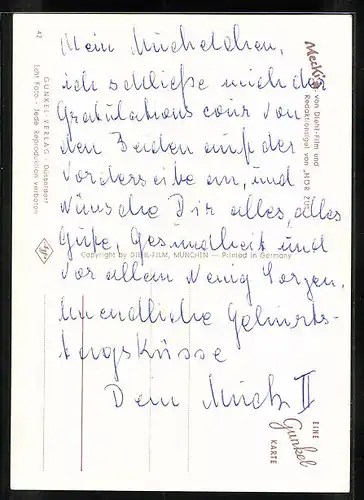 Mein Muckelchen,
ich schließe mich der
Gratulations cour von
den Beiden auf der
Vorderseite an, und
wünsche Dir alles, alles
Gute, Gesundheit und
vor allem wenig Sorgen.
Unendliche Geburts-
tagsküsse
Dein Muck II
Mecki
von Diehl-Film und
Redaktionsigel von „HÖR ZU"
Copyright by DIEHL-FILM, MÜNCHEN — Printed in Germany
42
GUNKEL-VERLAG · Düsseldorf
Echt Foto - Jede Reproduktion verboten
EINE
Gunkel
KARTE